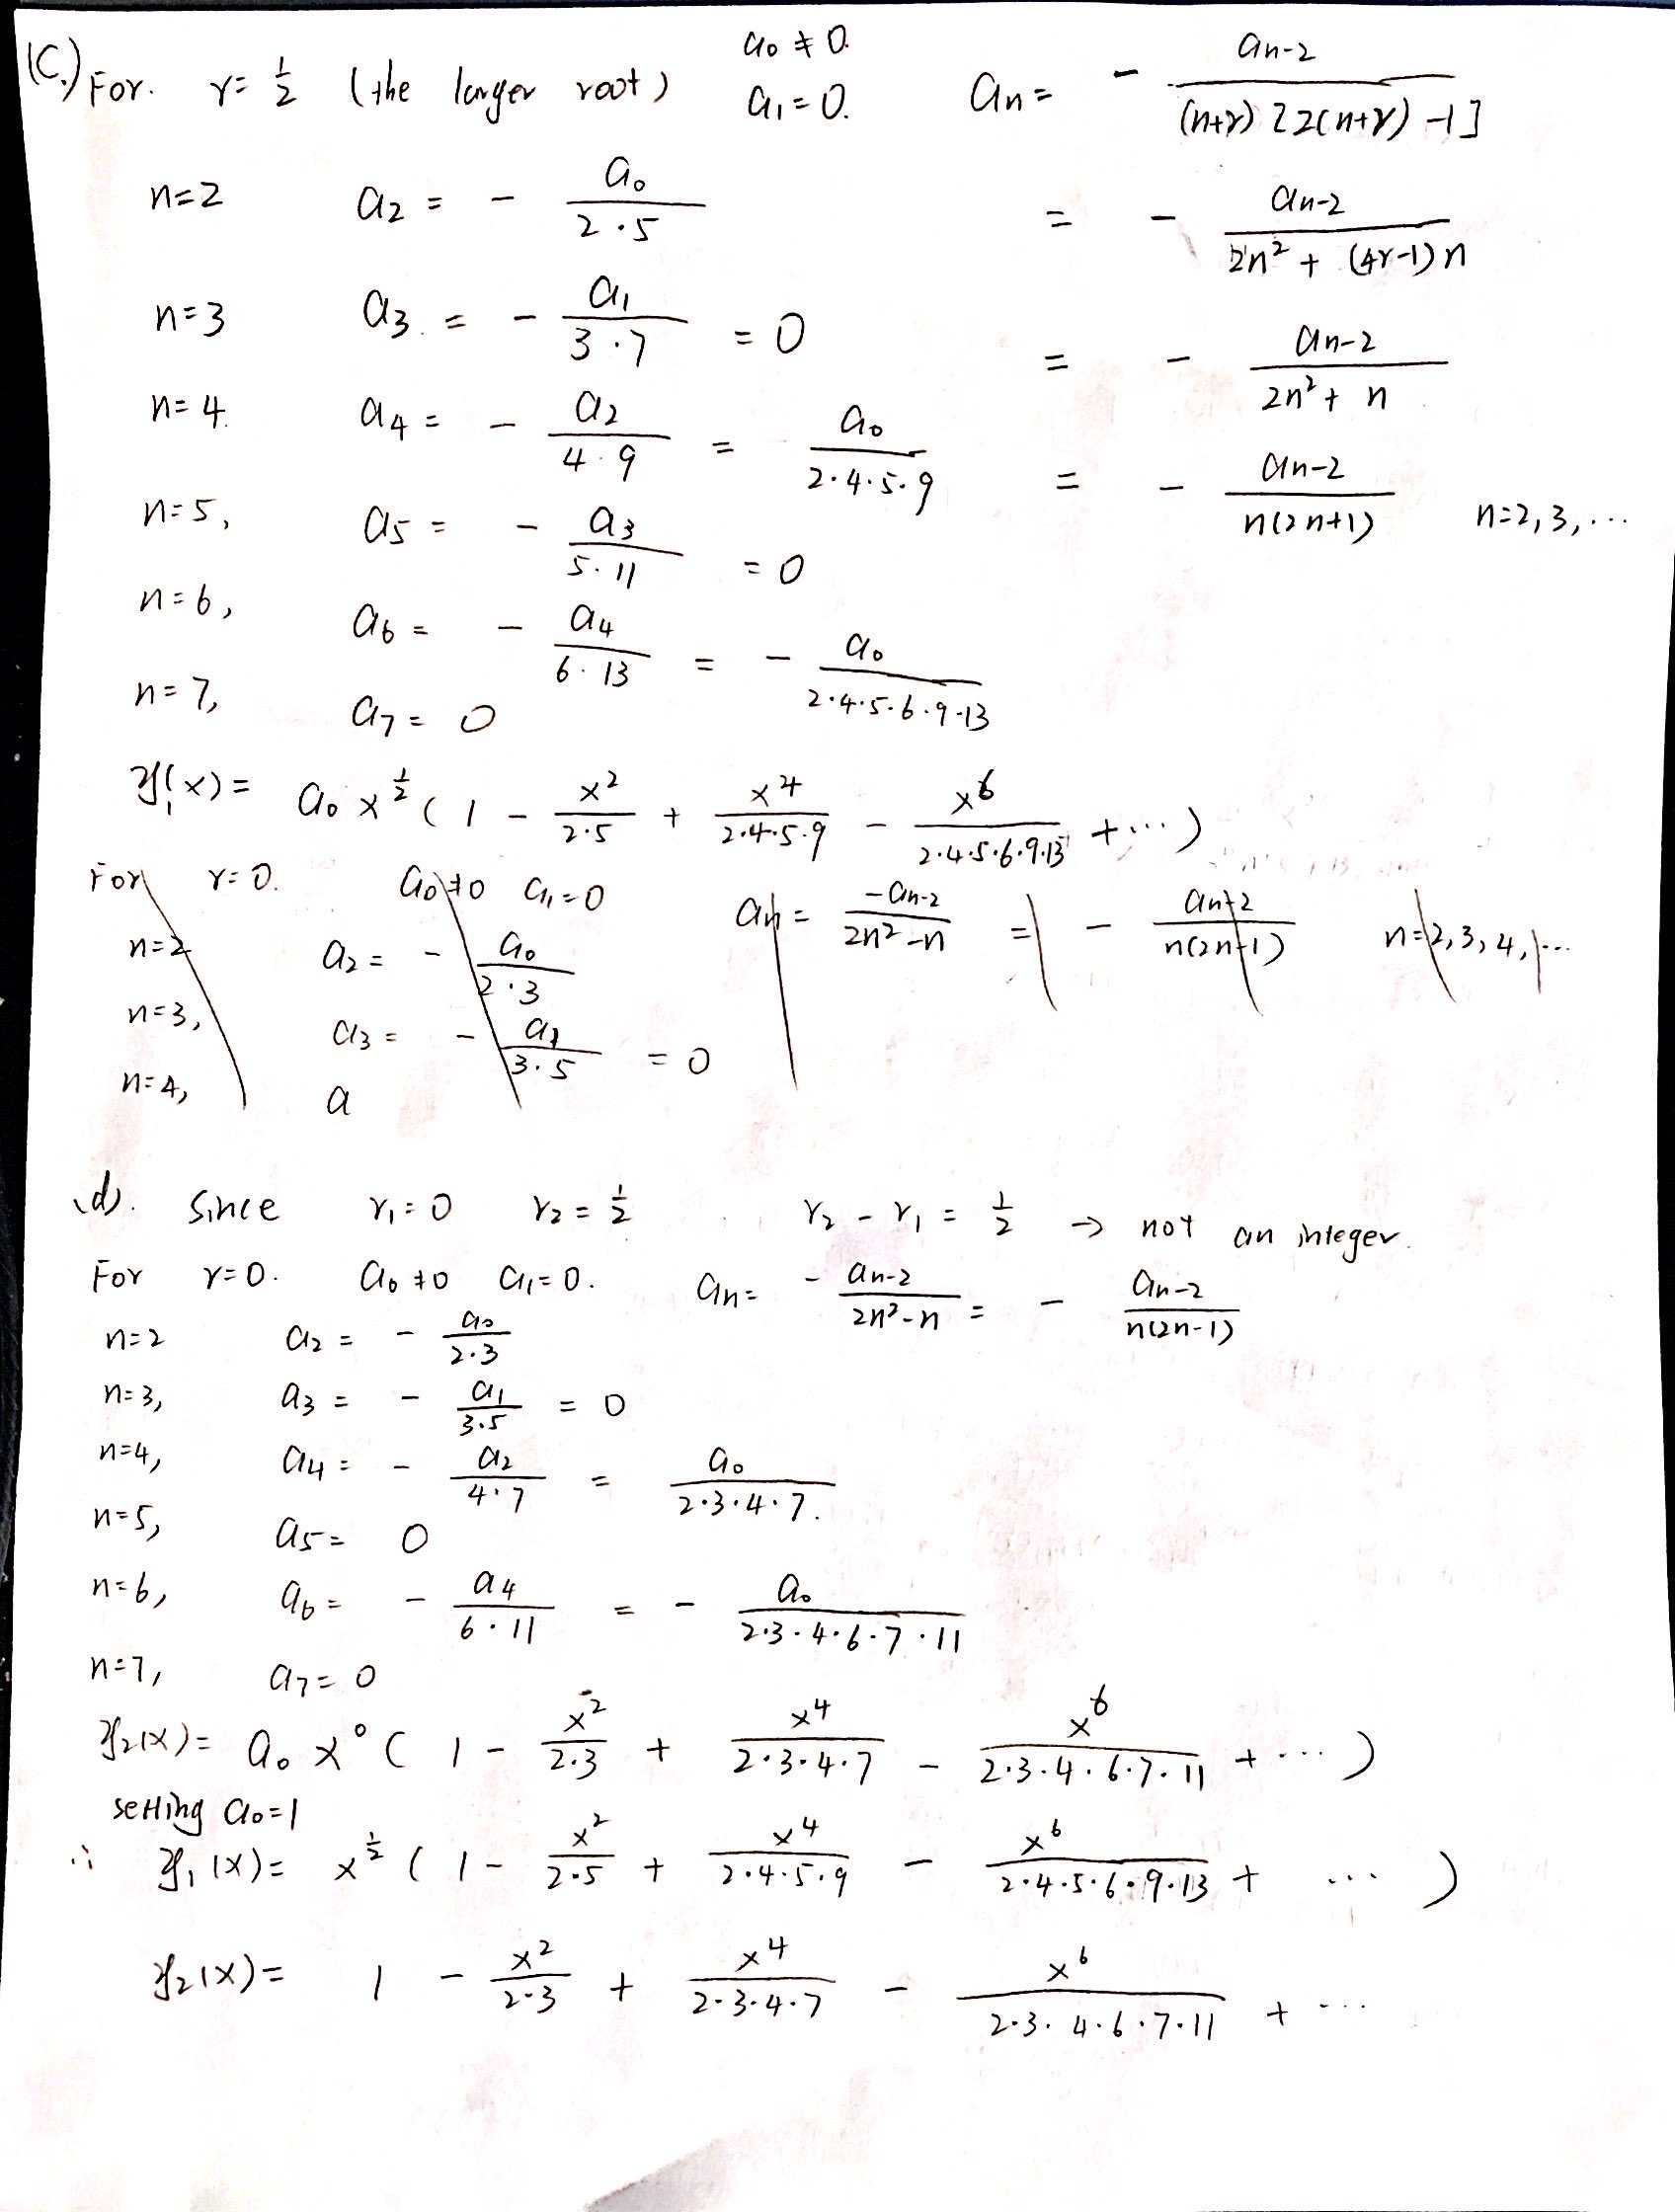 (C.) For. r = 1/2 (the larger root) a₀ ≠ 0. a₁ = 0. aₙ = - aₙ₋₂ / (n+r)[2(n+r) -1]
n=2 a₂ = - a₀ / 2·5 = - aₙ₋₂ / 2n² + (4r-1)n
n=3 a₃. = - a₁ / 3·7 = 0 = - aₙ₋₂ / 2n² + n
n=4. a₄ = - a₂ / 4·9 = a₀ / 2·4·5·9 = - aₙ₋₂ / n(2n+1) n=2,3,...
n=5, a₅ = - a₃ / 5·11 = 0
n=6, a₆ = - a₄ / 6·13 = - a₀ / 2·4·5·6·9·13
n=7, a₇ = 0
y₁(x) = a₀ x^½ ( 1 - x²/2·5 + x⁴/2·4·5·9 - x⁶/2·4·5·6·9·13 + ... )
For r=0. a₀≠0 a₁=0 aₙ = -aₙ₋₂ / 2n²-n = - aₙ₋₂ / n(2n-1) n=2,3,4,...
n=2 a₂ = - a₀ / 2·3
n=3, a₃ = - a₁ / 3·5 = 0
n=4, a
(d). Since r₁=0 r₂ = 1/2 r₂ - r₁ = 1/2 → not an integer.
For r=0. a₀≠0 a₁=0. aₙ = - aₙ₋₂ / 2n²-n = - aₙ₋₂ / n(2n-1)
n=2 a₂ = - a₀ / 2·3
n=3, a₃ = - a₁ / 3·5 = 0
n=4, a₄ = - a₂ / 4·7 = a₀ / 2·3·4·7.
n=5, a₅ = 0
n=6, a₆ = - a₄ / 6·11 = - a₀ / 2·3·4·6·7·11
n=7, a₇ = 0
y₂(x) = a₀ x⁰ ( 1 - x²/2·3 + x⁴/2·3·4·7 - x⁶/2·3·4·6·7·11 + ... )
setting a₀=1
∴ y₁(x) = x^½ ( 1 - x²/2·5 + x⁴/2·4·5·9 - x⁶/2·4·5·6·9·13 + ... )
y₂(x) = 1 - x²/2·3 + x⁴/2·3·4·7 - x⁶/2·3·4·6·7·11 + ...